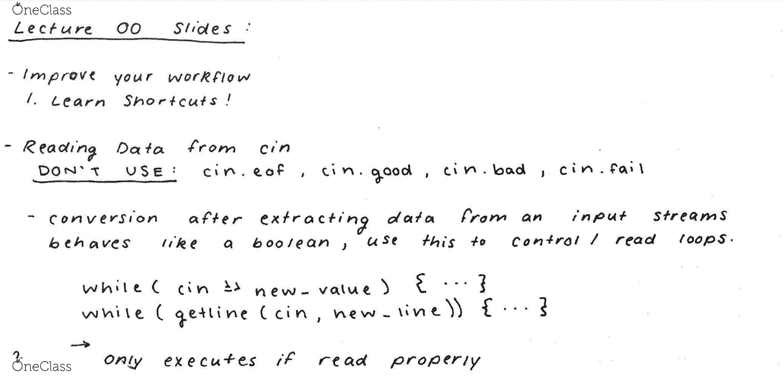 OneClass
Lecture 00 Slides :
- Improve your workflow
1. Learn Shortcuts !
- Reading Data from cin
DON'T USE : cin.eof , cin.good , cin.bad , cin.fail
- conversion after extracting data from an input streams
behaves like a boolean , use this to control / read loops.
while ( cin >> new_value ) { ... }
while ( getline ( cin , new_line )) { ... }
→ only executes if read properly
OneClass